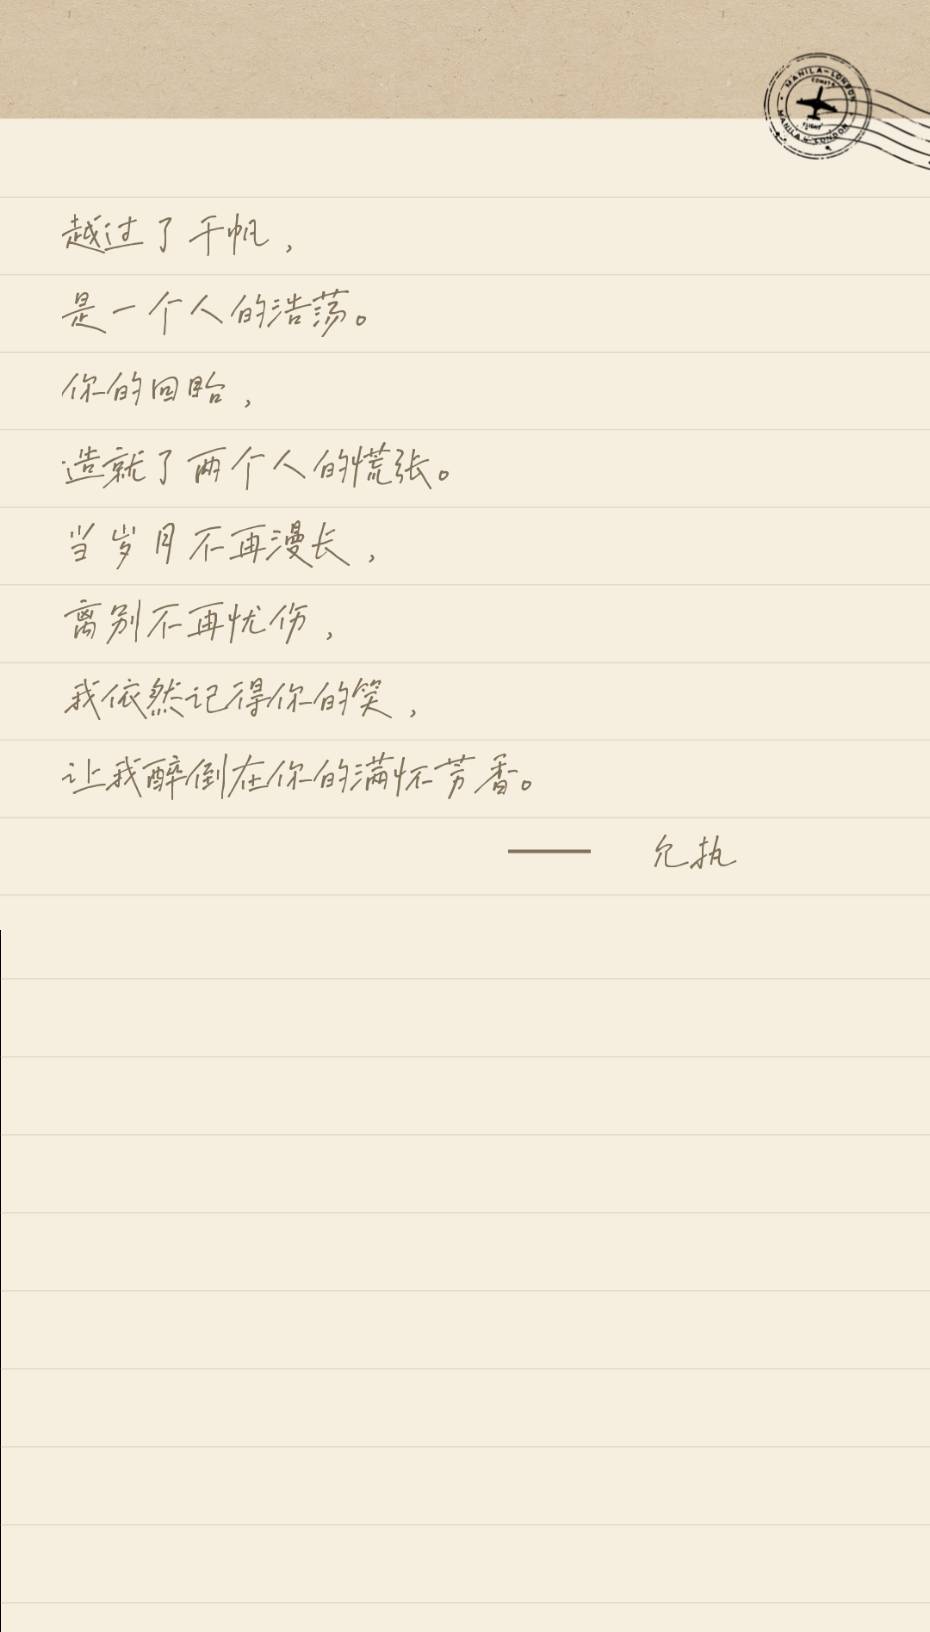 MANILA-LONDON
MANILA-LONDON
越过了千帆，
是一个人的浩荡。
你的回眙，
造就了两个人的慌张。
当岁月不再漫长，
离别不再忧伤，
我依然记得你的笑，
让我醉倒在你的满怀芳香。
—— 允执